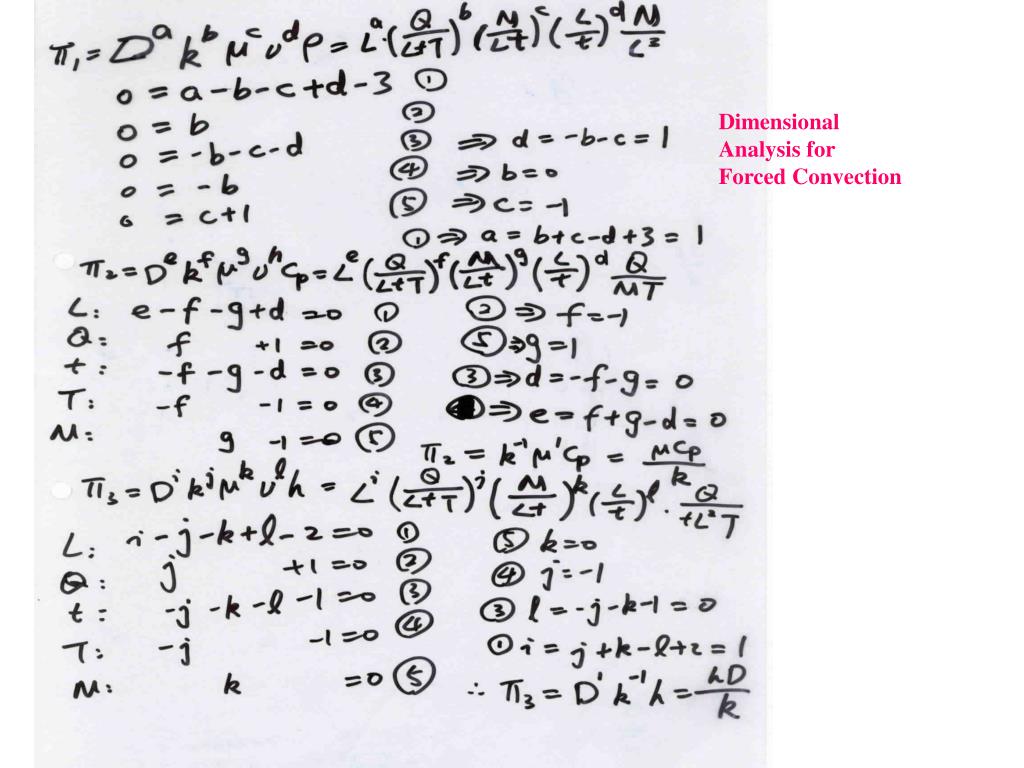 π₁ = D^a k^b μ^c υ^d ρ = L^a (Q/LtT)^b (M/Lt)^c (L/t)^d M/L³
0 = a-b-c+d-3 ①
0 = b ②
0 = -b-c-d ③ ⇒ d = -b-c = 1
0 = -b ④ ⇒ b=0
0 = c+1 ⑤ ⇒ c = -1
① ⇒ a = b+c-d+3 = 1
Dimensional
Analysis for
Forced Convection
π₂ = D^e k^f μ^g υ^h Cp = L^e (Q/LtT)^f (M/Lt)^g (L/t)^d Q/MT
L: e-f-g+d =0 ① ② ⇒ f=-1
Q: f +1 =0 ② ⑤ ⇒ g=1
t: -f-g-d =0 ③ ③ ⇒ d=-f-g= 0
T: -f -1 = 0 ④ ⇒ e = f+g-d= 0
M: g -1=0 ⑤
π₂ = k⁻¹ μ¹ Cp = μCp/k
π₃ = D^i k^j μ^k υ^l h = L^i (Q/LtT)^j (M/Lt)^k (L/t)^l · Q/tL²T
L: i-j-k+l-2=0 ① ⑤ k=0
Q: j +1=0 ② ④ j=-1
t: -j -k -l -1=0 ③ ③ l=-j-k-1=0
T: -j -1=0 ④ ① i= j+k-l+2=1
M: k =0 ⑤ ∴ π₃ = D¹ k⁻¹ h = hD/k